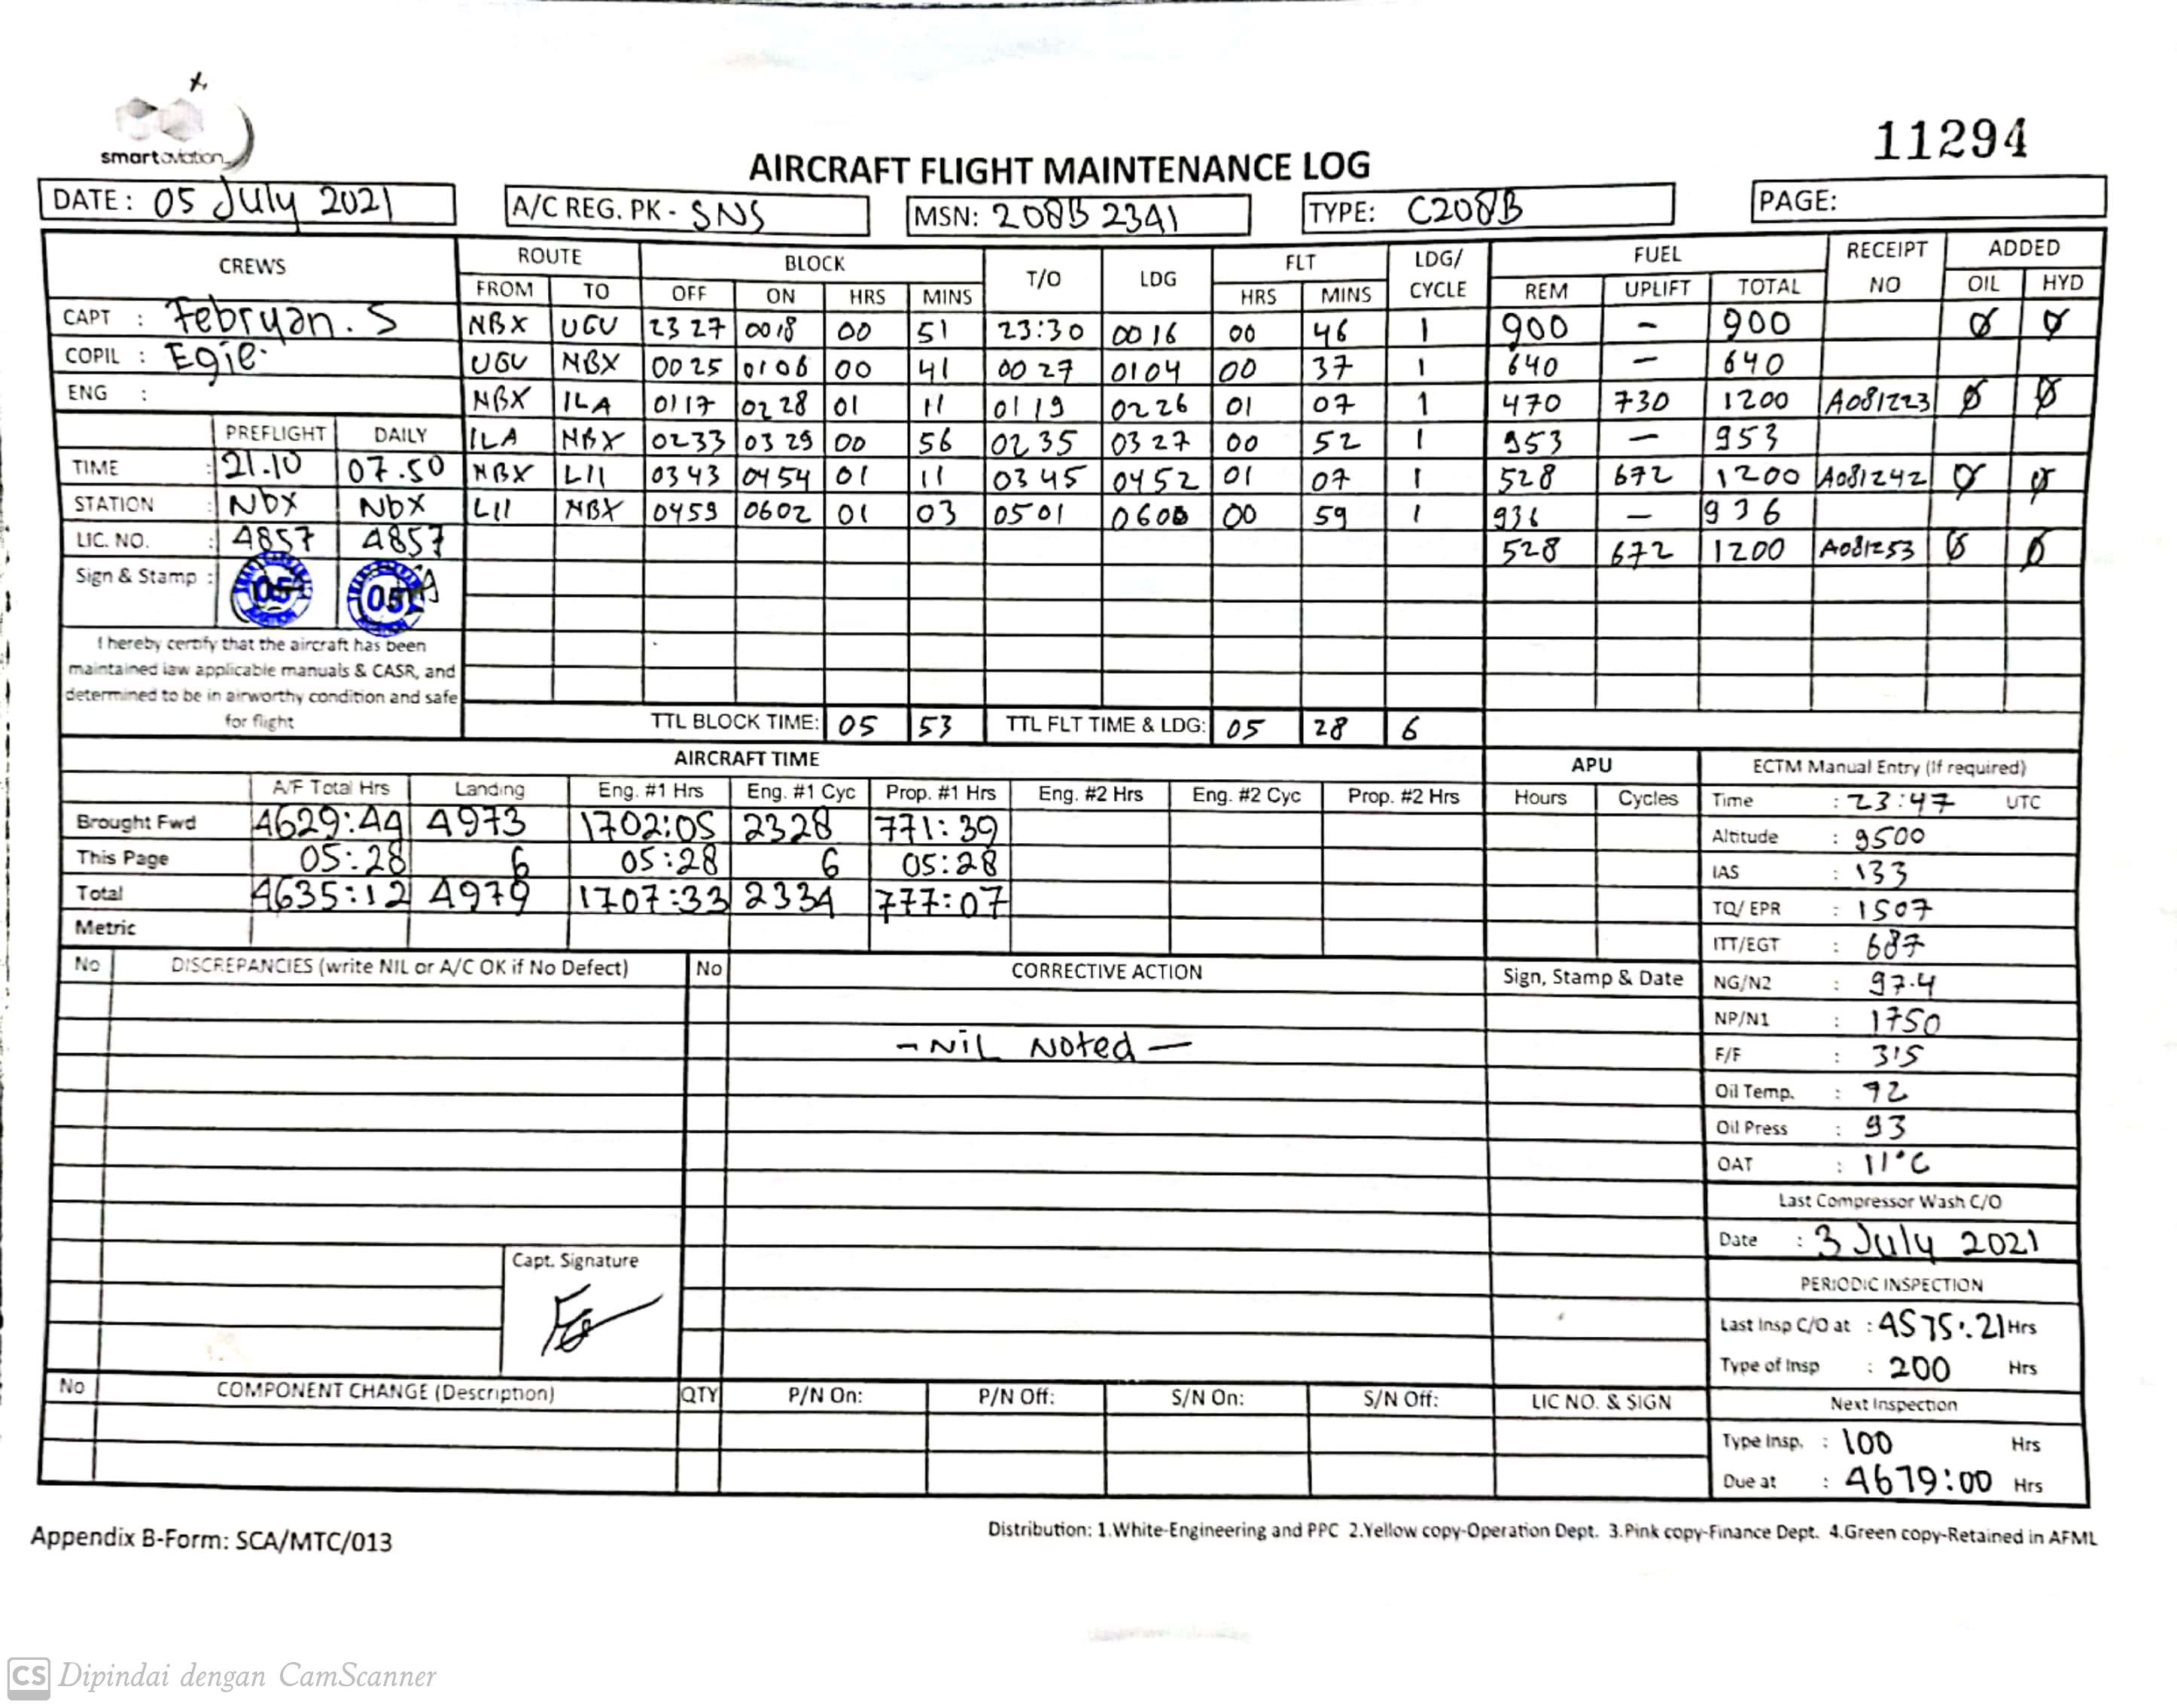 smart aviation
11294
AIRCRAFT FLIGHT MAINTENANCE LOG
DATE: 05 July 2021 A/C REG. PK - SNS MSN: 208B 2341 TYPE: C208B PAGE:
CREWS ROUTE BLOCK T/O LDG FLT LDG/ CYCLE FUEL RECEIPT NO ADDED
FROM TO OFF ON HRS MINS HRS MINS REM UPLIFT TOTAL OIL HYD
CAPT : Febryan. S NBX UGU 23 27 0018 00 51 23:30 0016 00 46 1 900 – 900 Ø Ø
COPIL : Egie. UGU NBX 0025 0106 00 41 00 27 0104 00 37 1 640 – 640
ENG : NBX ILA 0117 0228 01 11 0119 0226 01 07 1 470 730 1200 A081223 Ø Ø
PREFLIGHT DAILY ILA NBX 0233 0329 00 56 0235 0327 00 52 1 953 – 953
TIME : 21.10 07.50 NBX LII 0343 0454 01 11 0345 0452 01 07 1 528 672 1200 A081242 Ø Ø
STATION : Nbx Nbx LII NBX 0459 0602 01 03 0501 0600 00 59 1 936 – 936
LIC. NO. : 4857 4857 528 672 1200 A081253 Ø Ø
Sign & Stamp : 05 05
I hereby certify that the aircraft has been
maintained iaw applicable manuals & CASR, and
determined to be in airworthy condition and safe
for flight
TTL BLOCK TIME: 05 53 TTL FLT TIME & LDG: 05 28 6
AIRCRAFT TIME APU ECTM Manual Entry (If required)
A/F Total Hrs Landing Eng. #1 Hrs Eng. #1 Cyc Prop. #1 Hrs Eng. #2 Hrs Eng. #2 Cyc Prop. #2 Hrs Hours Cycles Time : 23:47 UTC
Brought Fwd 4629:44 4973 1702:05 2328 771:39 Altitude : 9500
This Page 05:28 6 05:28 6 05:28 IAS : 133
Total 4635:12 4979 1707:33 2334 777:07 TQ/ EPR : 1507
Metric ITT/EGT : 687
No DISCREPANCIES (write NIL or A/C OK if No Defect) No CORRECTIVE ACTION Sign, Stamp & Date NG/N2 : 97.4
NP/N1 : 1750
- NiL Noted - F/F : 315
Oil Temp. : 72
Oil Press : 93
OAT : 11°C
Last Compressor Wash C/O
Date : 3 July 2021
Capt. Signature
PERIODIC INSPECTION
Last Insp C/O at : 4575:21 Hrs
Type of Insp : 200 Hrs
No COMPONENT CHANGE (Description) QTY P/N On: P/N Off: S/N On: S/N Off: LIC NO. & SIGN Next Inspection
Type Insp. : 100 Hrs
Due at : 4679:00 Hrs
Appendix B-Form: SCA/MTC/013
Distribution: 1.White-Engineering and PPC 2.Yellow copy-Operation Dept. 3.Pink copy-Finance Dept. 4.Green copy-Retained in AFML
CS Dipindai dengan CamScanner